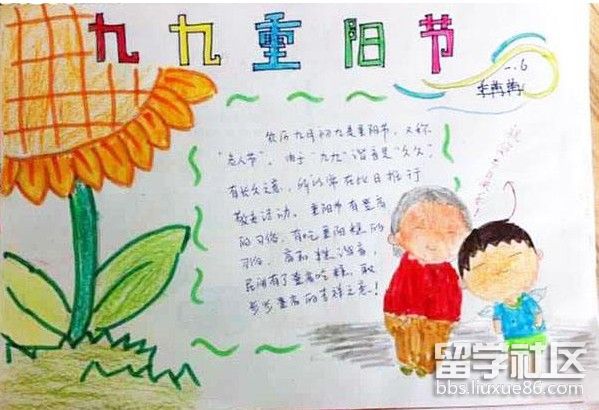 九九重阳节
一.6
李冉冉
农历九月初九是重阳节，又称
“老人节”。由于“九九”谐音是“久久”，
有长久之意，所以常在此日推行
敬老活动。重阳节有登高
的习俗，有吃重阳糕的
习俗，高和糕谐音，
民间有了登高吃糕，取
步步登高的吉祥之意！
留学社区
bbs.liuxue86.com